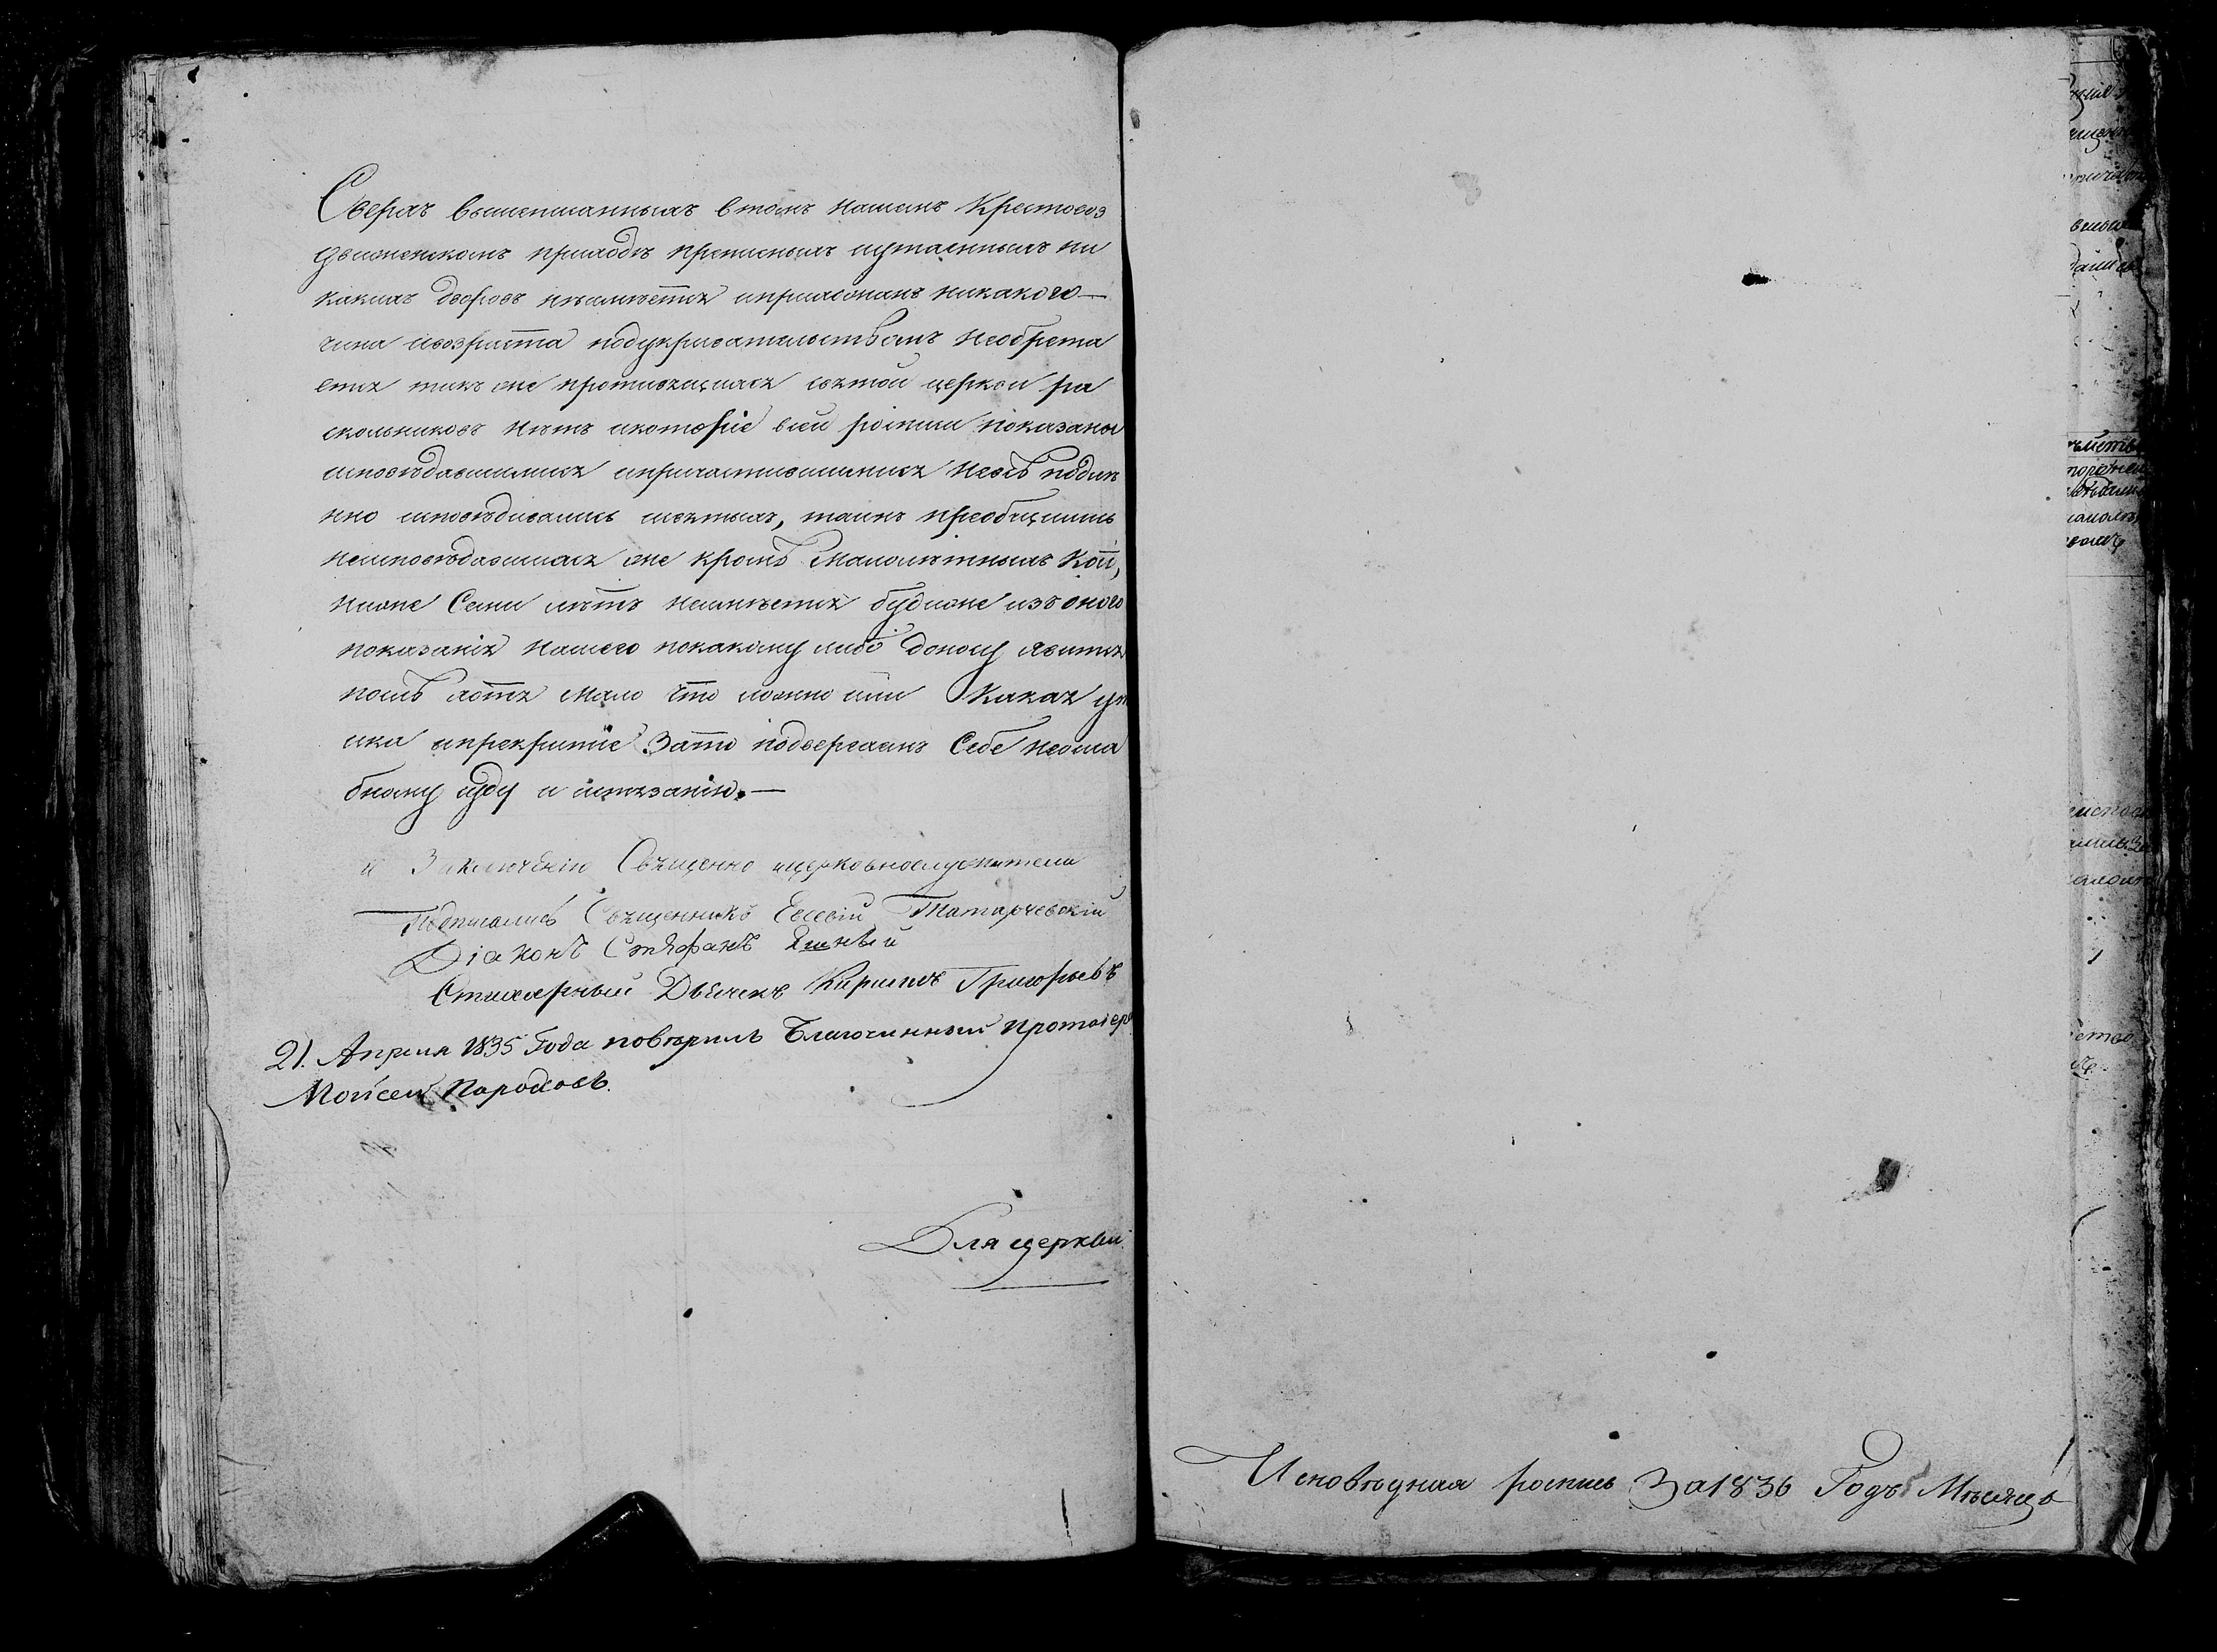 Сверхъ вышеписанныхъ втомъ нашемъ Крестовоз
движенскомъ приходѣ прописныхъ иутаенныхъ ни
какихъ дворовъ неимѣется иприхожанъ никакого
чина ивозраста подукривательствомъ необрета
ется такъ же противящихся святой церкви ра
скольниковъ нѣтъ икоторіе всей росписи показаны
исповѣдавшимися ипричастившимися Несѣ подли
нно исповѣдивались исвятыхъ, таинъ преобщились
неисповѣдавшихся же кромѣ малолѣтныхъ кои,
ниже Семи лѣтъ неимѣется будиже изъ оного
показанія нашего покакому либо доносу явится
посѣ хотя мало что ложно или какая ут
ика ипрекритіе Зато подвергаемъ Себе неосла
бному суду и истязанію.—
и Заключенію Священно ицерковнослужители
Подписались Священникъ Евсевій Татарчевскій
Діаконъ Стефанъ
Стихарный Дьячекъ Кирилъ Григорьевъ
21. Апреля 1835 Года повѣрилъ Благочинный Протоіер
Моисей
Для церкви.
Исповѣдная роспись За 1836 Годъ Мѣсяцъ